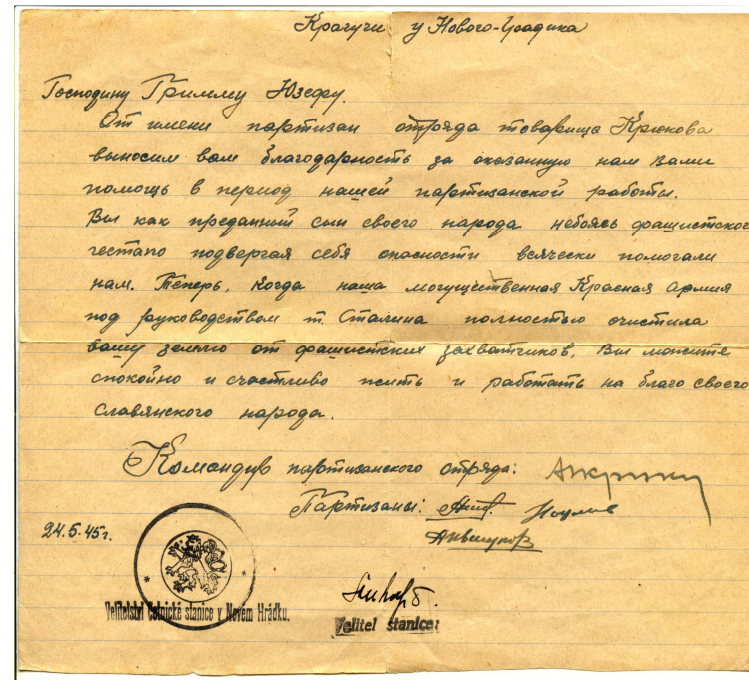 Крагучи у Нового-Градика
Господину Гримму Юзефу.
От имени партизан отряда товарища Крюкова
выносим вам благодарность за оказанную нам вами
помощь в период нашей партизанской работы.
Вы как преданный сын своего народа небоясь фашистского
гестапо подвергая себя опасности всячески помогали
нам. Теперь, когда наша могущественная Красная армия
под руководством т. Сталина полностью очистила
вашу землю от фашистских захватчиков, Вы можите
спокойно и счастливо жить и работать на благо своего
славянского народа.
Командир партизанского отряда:
Партизаны:
24.5.45г.
Velitelství četnické stanice v Novém Hrádku.
Velitel stanice: